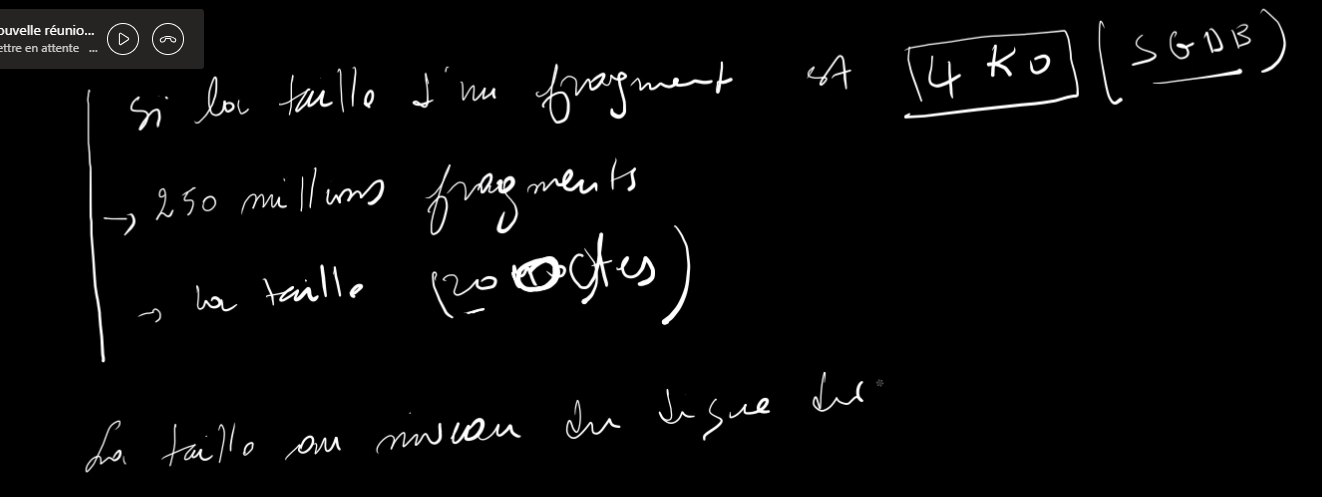 ouvelle réunio...
ettre en attente ...
si la taille d'un fragment est 4 KO (SGDB)
→ 250 millions fragments
→ la taille (20 octes)
La taille au niveau du disque dur